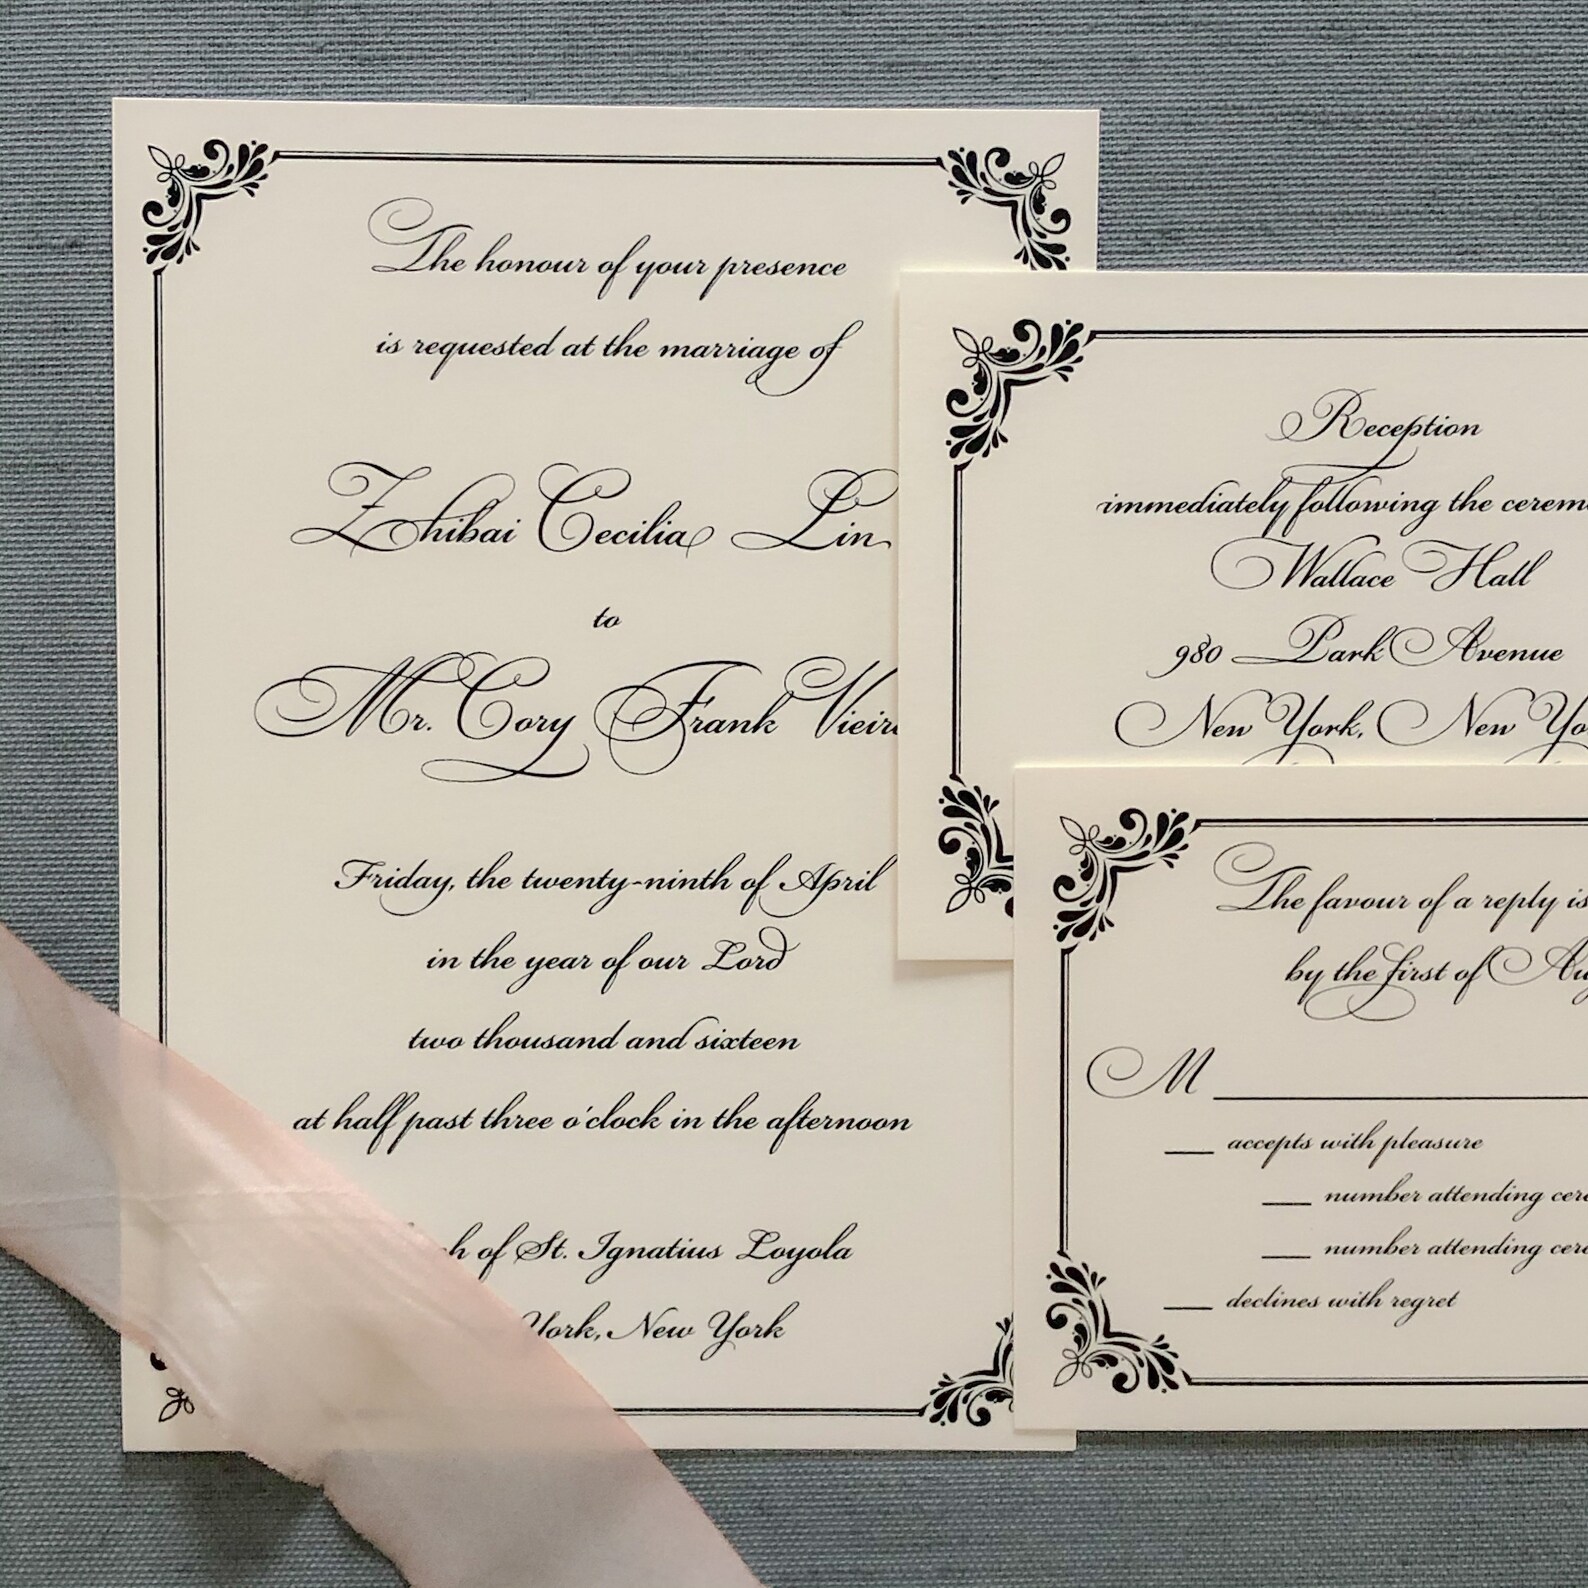 The honour of your presence
is requested at the marriage of
Zhibai Cecilia Lin
to
Mr. Cory Frank
Friday, the twenty-ninth of April
in the year of our Lord
two thousand and sixteen
at half past three o'clock in the afternoon
of St. Ignatius Loyola
York, New York
Reception
immediately following the
Wallace Hall
980 Park Avenue
New York, New
The favour of a reply is
by the first of
M
accepts with pleasure
number attending
number attending
declines with regret